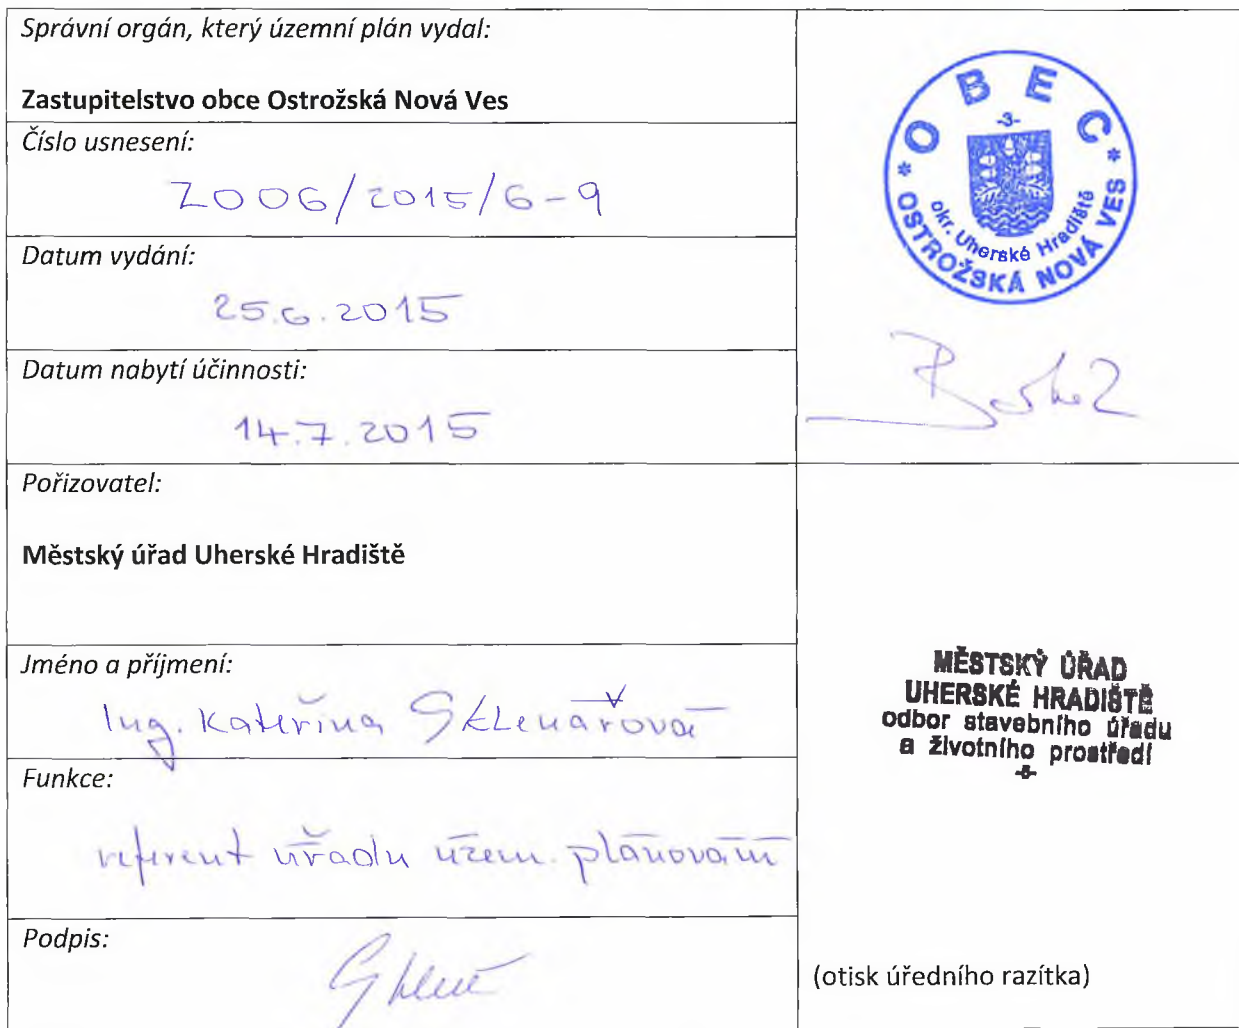 Správní orgán, který územní plán vydal:
Zastupitelstvo obce Ostrožská Nová Ves
Číslo usnesení:
Z006/2015/6-9
Datum vydání:
25.6.2015
Datum nabytí účinnosti:
14.7.2015
OBEC
-3-
okr. Uherské Hradiště
* OSTROŽSKÁ NOVÁ VES *
Pořizovatel:
Městský úřad Uherské Hradiště
Jméno a příjmení:
Ing. Kateřina Sklenářová
Funkce:
referent úřadu územ. plánování
Podpis:
MĚSTSKÝ ÚŘAD
UHERSKÉ HRADIŠTĚ
odbor stavebního úřadu
a životního prostředí
(otisk úředního razítka)